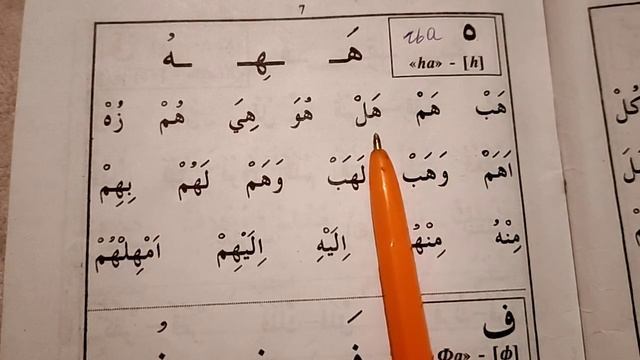 7
ه гьа
«ha» - [h]
هَـ ـهِـ ـهُ
هَبْ هَمْ هَلْ هُوَ هِيَ هُمْ زُهْ
اَهَمْ وَهَبْ لَهَبْ وَهَمْ لَهُمْ بِهِمْ
مِنْهُ اِلَيْهِ اِلَيْهِمْ اَمْهِلْهُمْ
ف
Фа» - [ф]